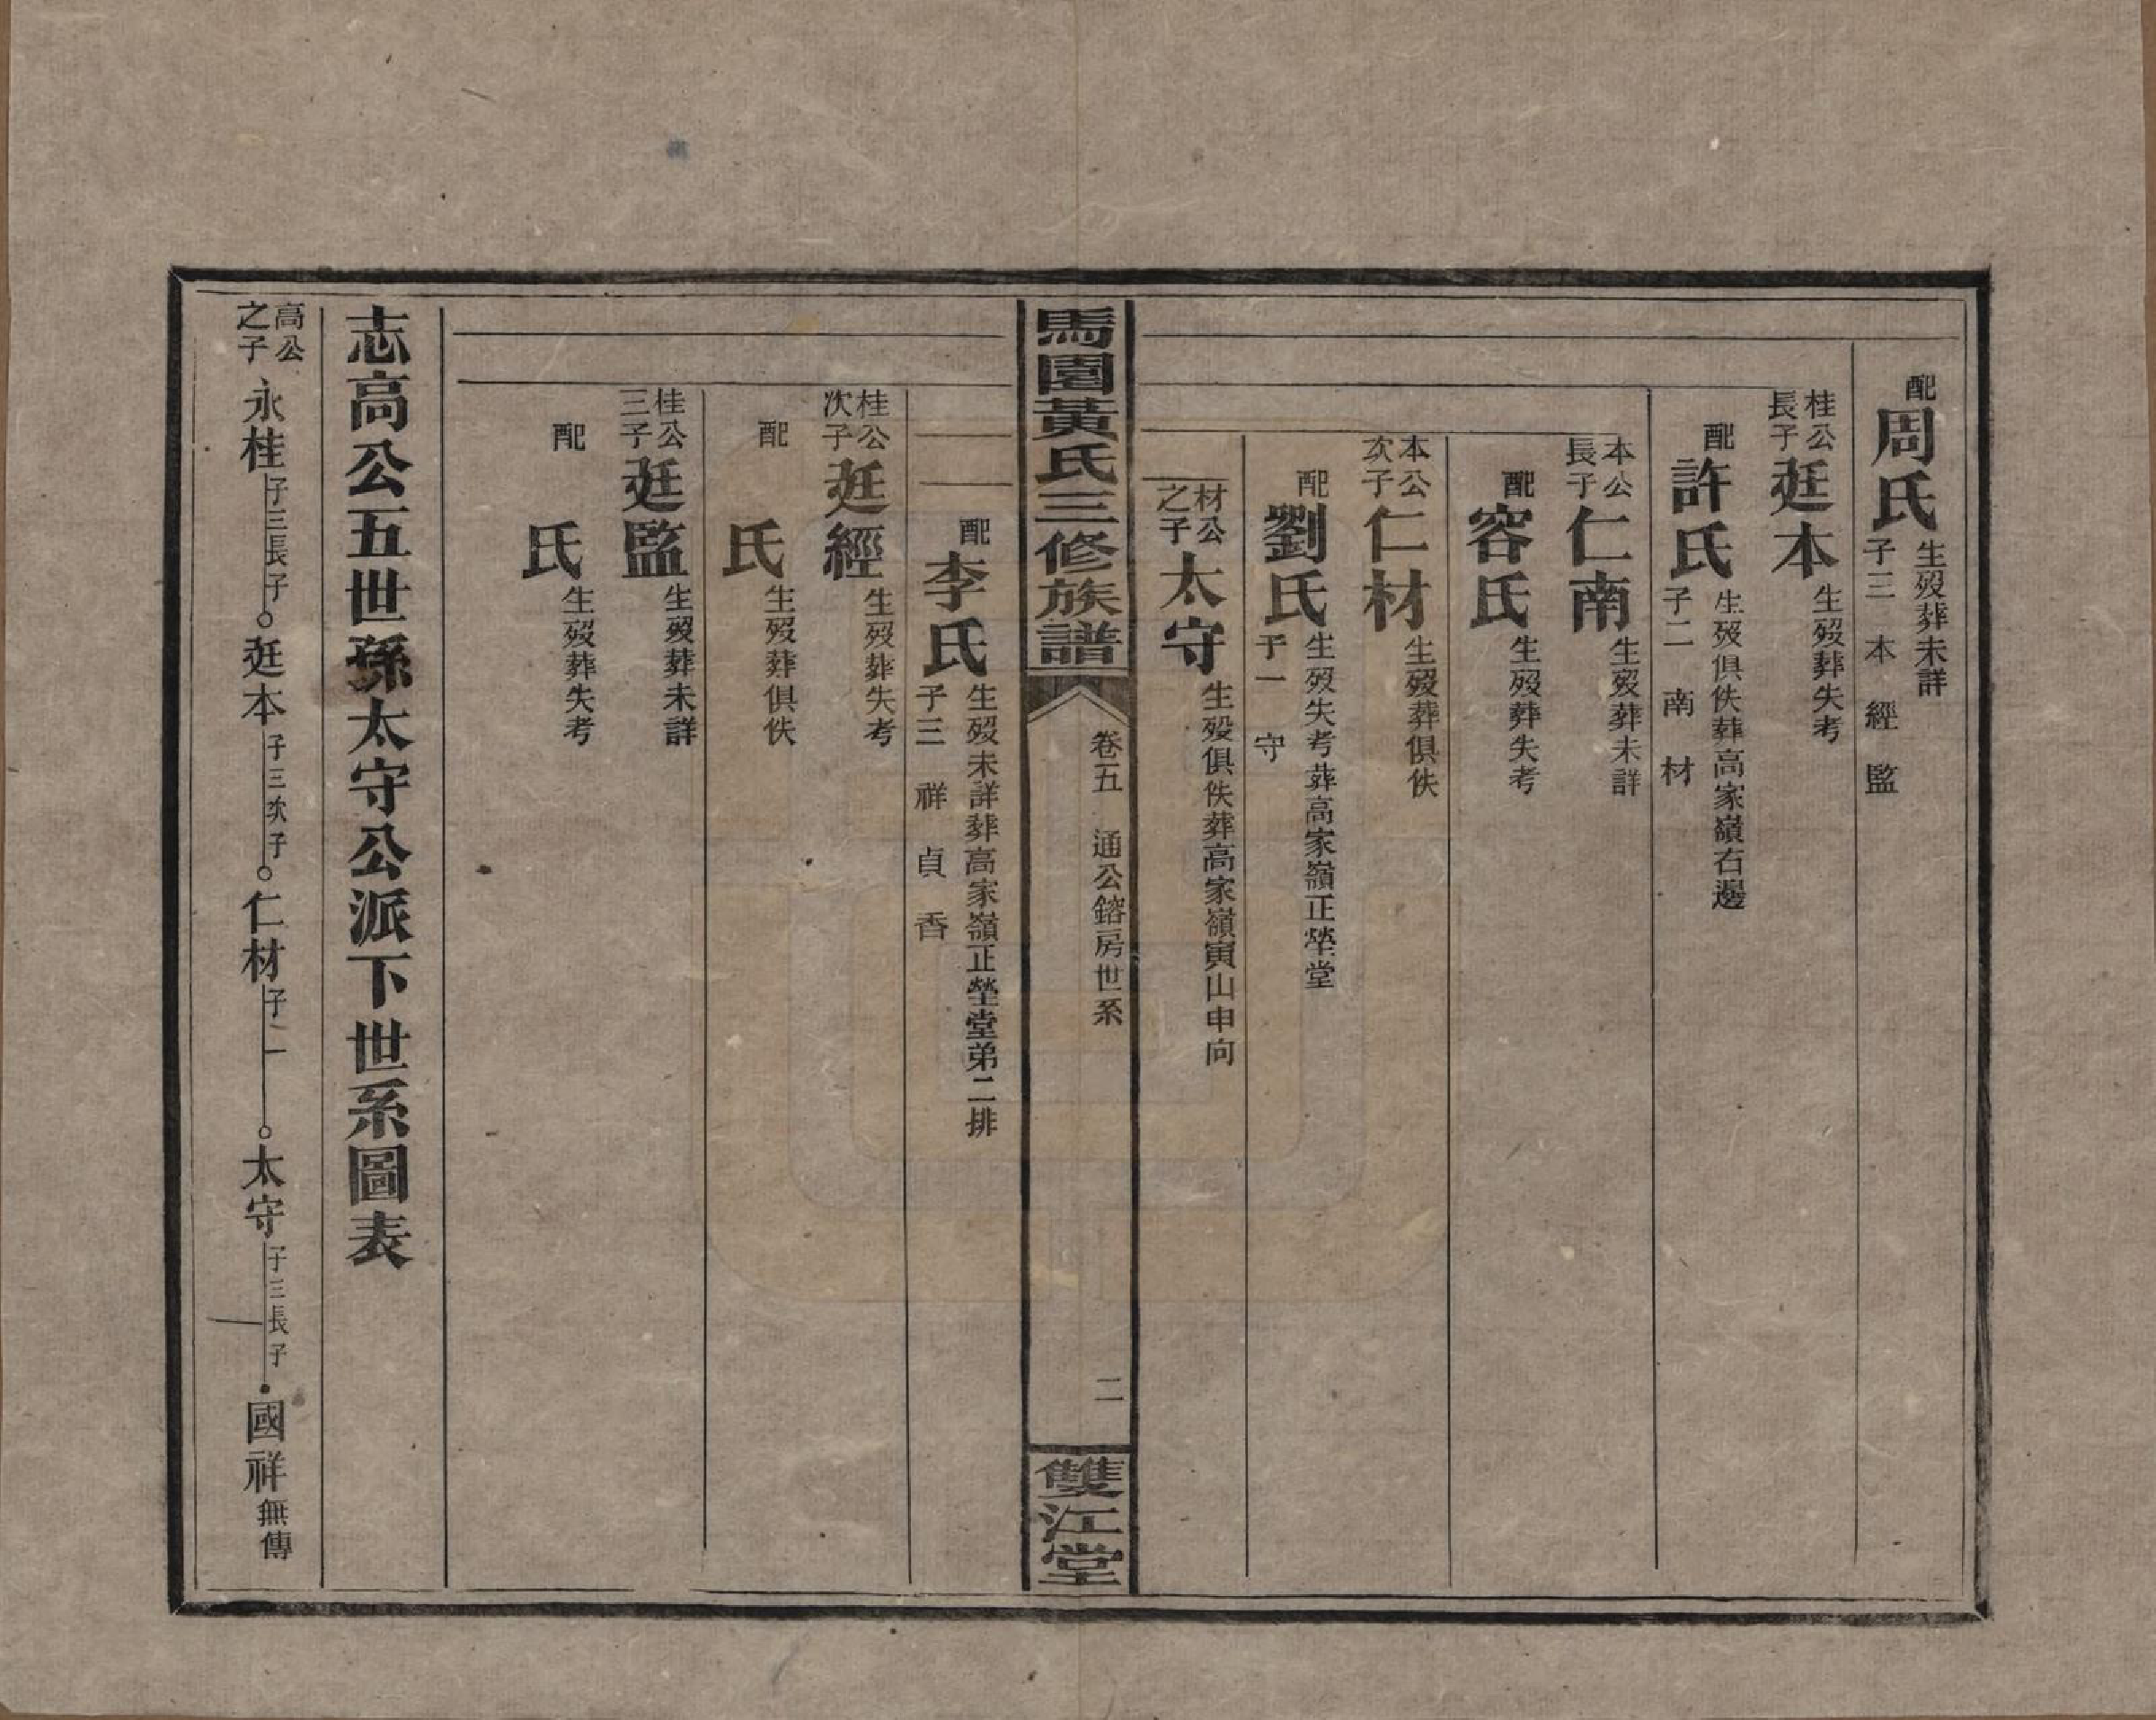 配周氏 生歿葬未詳
子三 本 經 監
桂公長子 廷本 生歿葬失考
配許氏 生歿俱佚葬高家嶺右邊
子二 南 材
本公長子 仁南 生歿葬未詳
配容氏 生歿葬失考
本公次子 仁材 生歿葬俱佚
配劉氏 生歿失考葬高家嶺正塋堂
子一 守
材公之子 太守 生歿俱佚葬高家嶺寅山申向
馬園黃氏三修族譜
卷五 通公鎔房世系
二
雙江堂
配李氏 生歿未詳葬高家嶺正塋堂弟二排
子三 祥 貞 香
桂公次子 廷經 生歿葬失考
配 氏 生歿葬俱佚
桂公三子 廷監 生歿葬未詳
配 氏 生歿葬失考
志高公五世孫太守公派下世系圖表
高公之子 永桂 子三長子 廷本 子三次子 仁材 子一 太守 子三長子 國祥 無傳